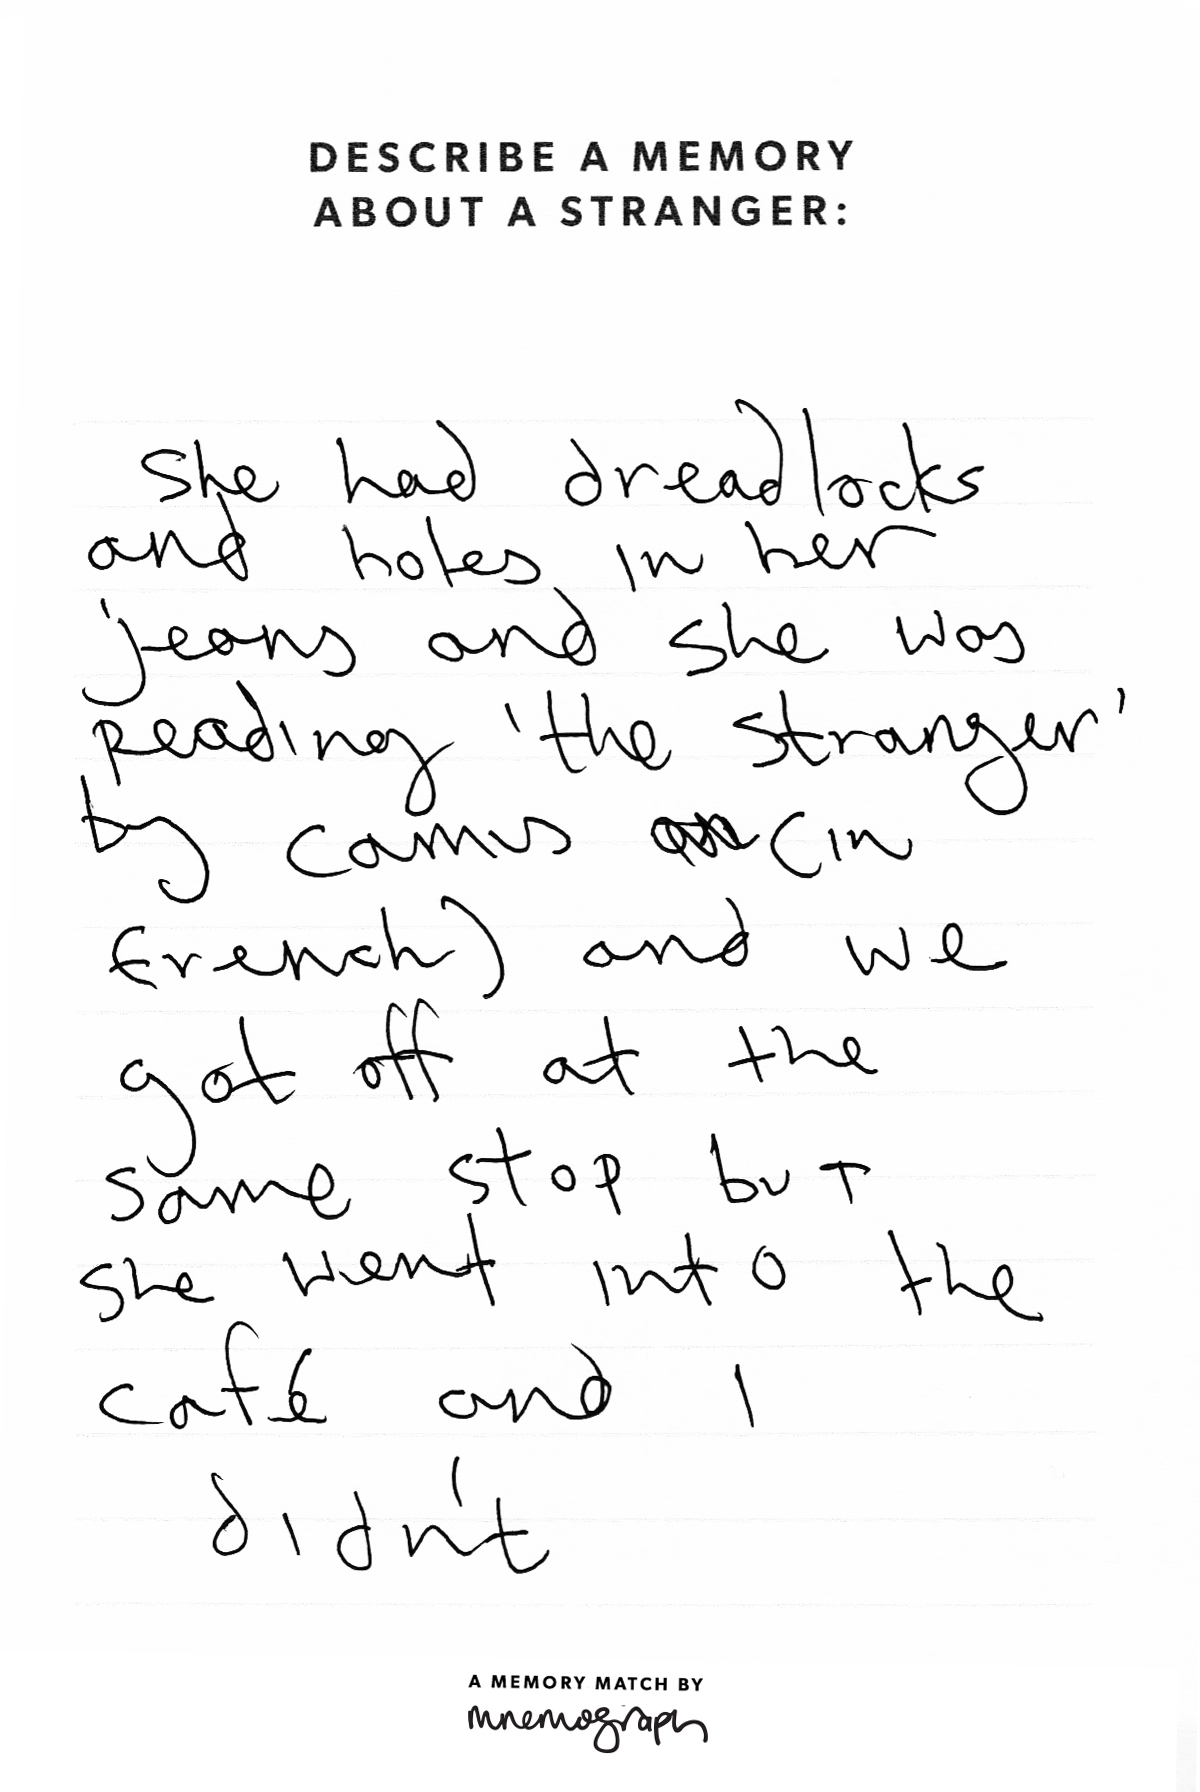 DESCRIBE A MEMORY
ABOUT A STRANGER:
She had dreadlocks
and holes in her
jeans and she was
reading 'the stranger'
by camus (in
french) and we
got off at the
same stop but
she went into the
café and I
didn't
A MEMORY MATCH BY
mnemograph